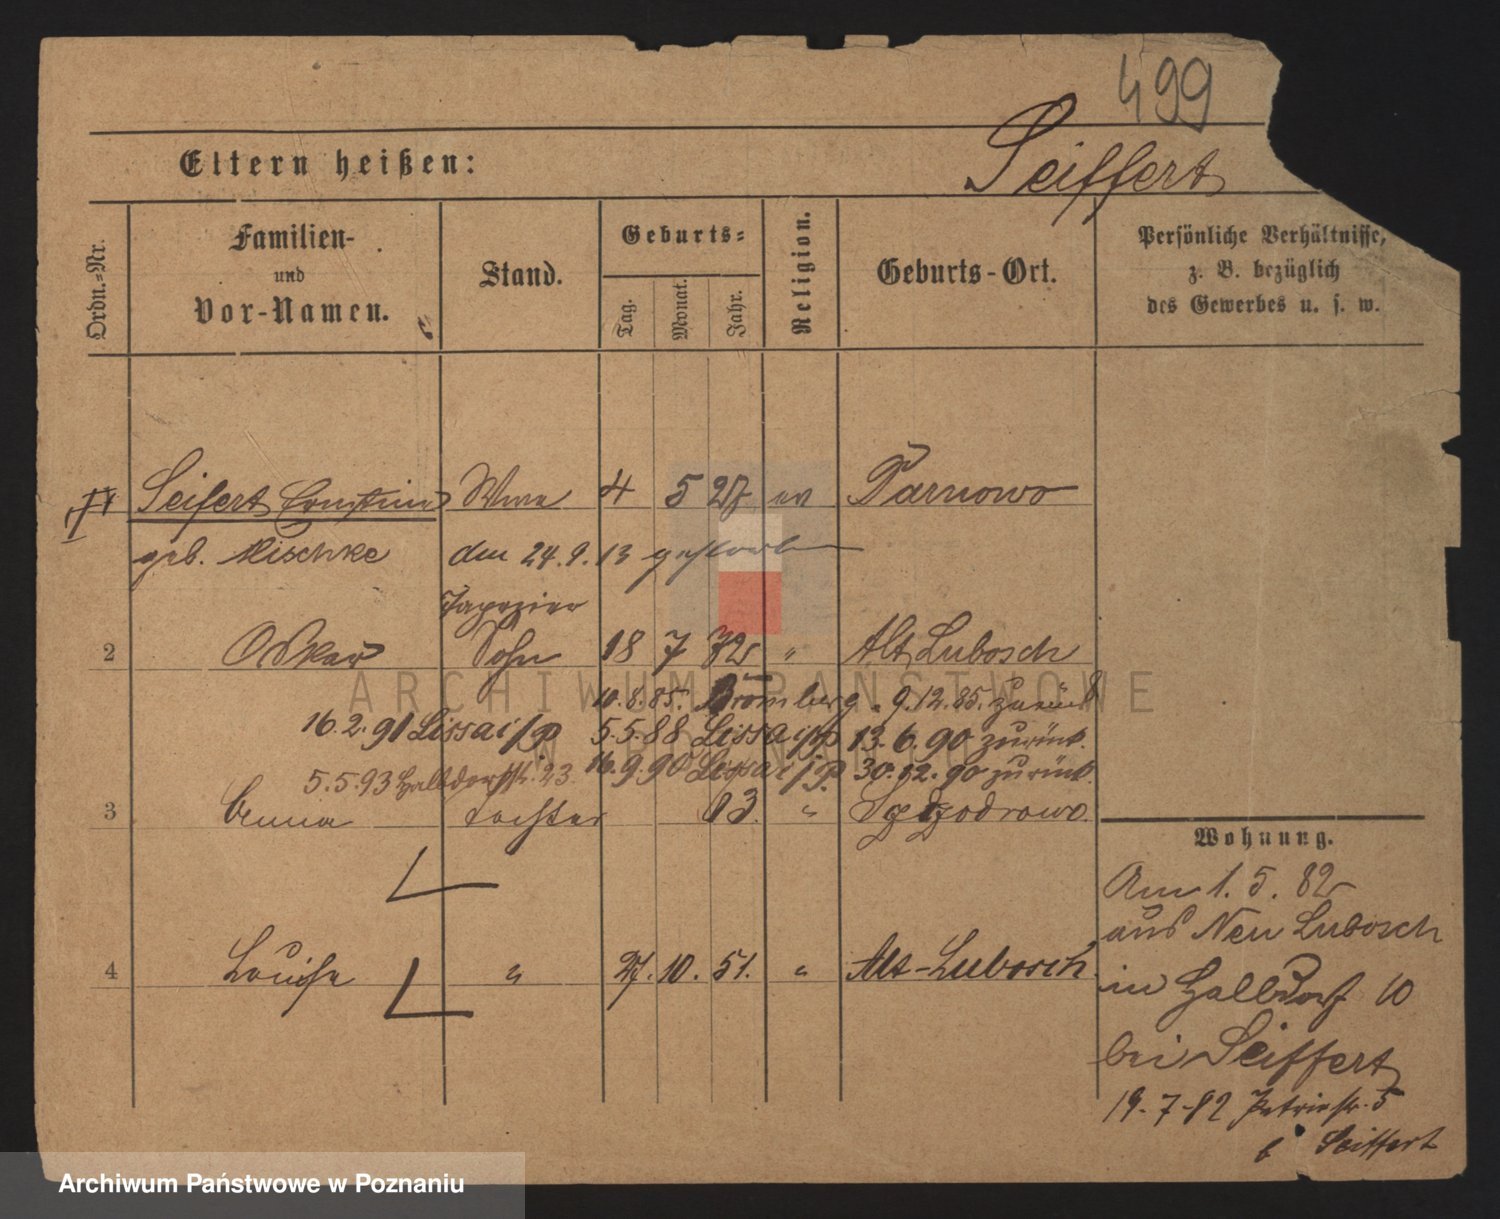 499
Eltern heißen:
Seiffert
Ordn.-Nr.
Familien-
und
Vor-Namen.
Stand.
Geburts-
Tag.
Monat.
Jahr.
Religion.
Geburts-Ort.
Persönliche Verhältnisse,
z. B. bezüglich
des Gewerbes u. s. w.
Seifert Ernstine Wwe 4 5 27 ev Tarnowo
geb. Mischke den 24.9.13 gestorben
Tapezier
2 Oskar Sohn 18 7 72 " Alt Lubosch
10.8.85. Bromberg . 9.12.85. zurück
16.2.91 Lissa i/P 5.5.88 Lissa i/P 13.6.90 zurück.
5.5.93 Halbdorfstr. 23. 16.9.90 Lissa i/P 30.12.90 zurück.
3 Anna Tochter 13. "
4 Louise " 27. 10. 51. " Alt-Lubosch.
Wohnung.
Am 1.5.82
aus Neu Lubosch
in Halbdorf 10
bei Seiffert
19.7.82 Petristr. 5
b Seiffert
ARCHIWUM PAŃSTWOWE
W POZNANIU
Archiwum Państwowe w Poznaniu